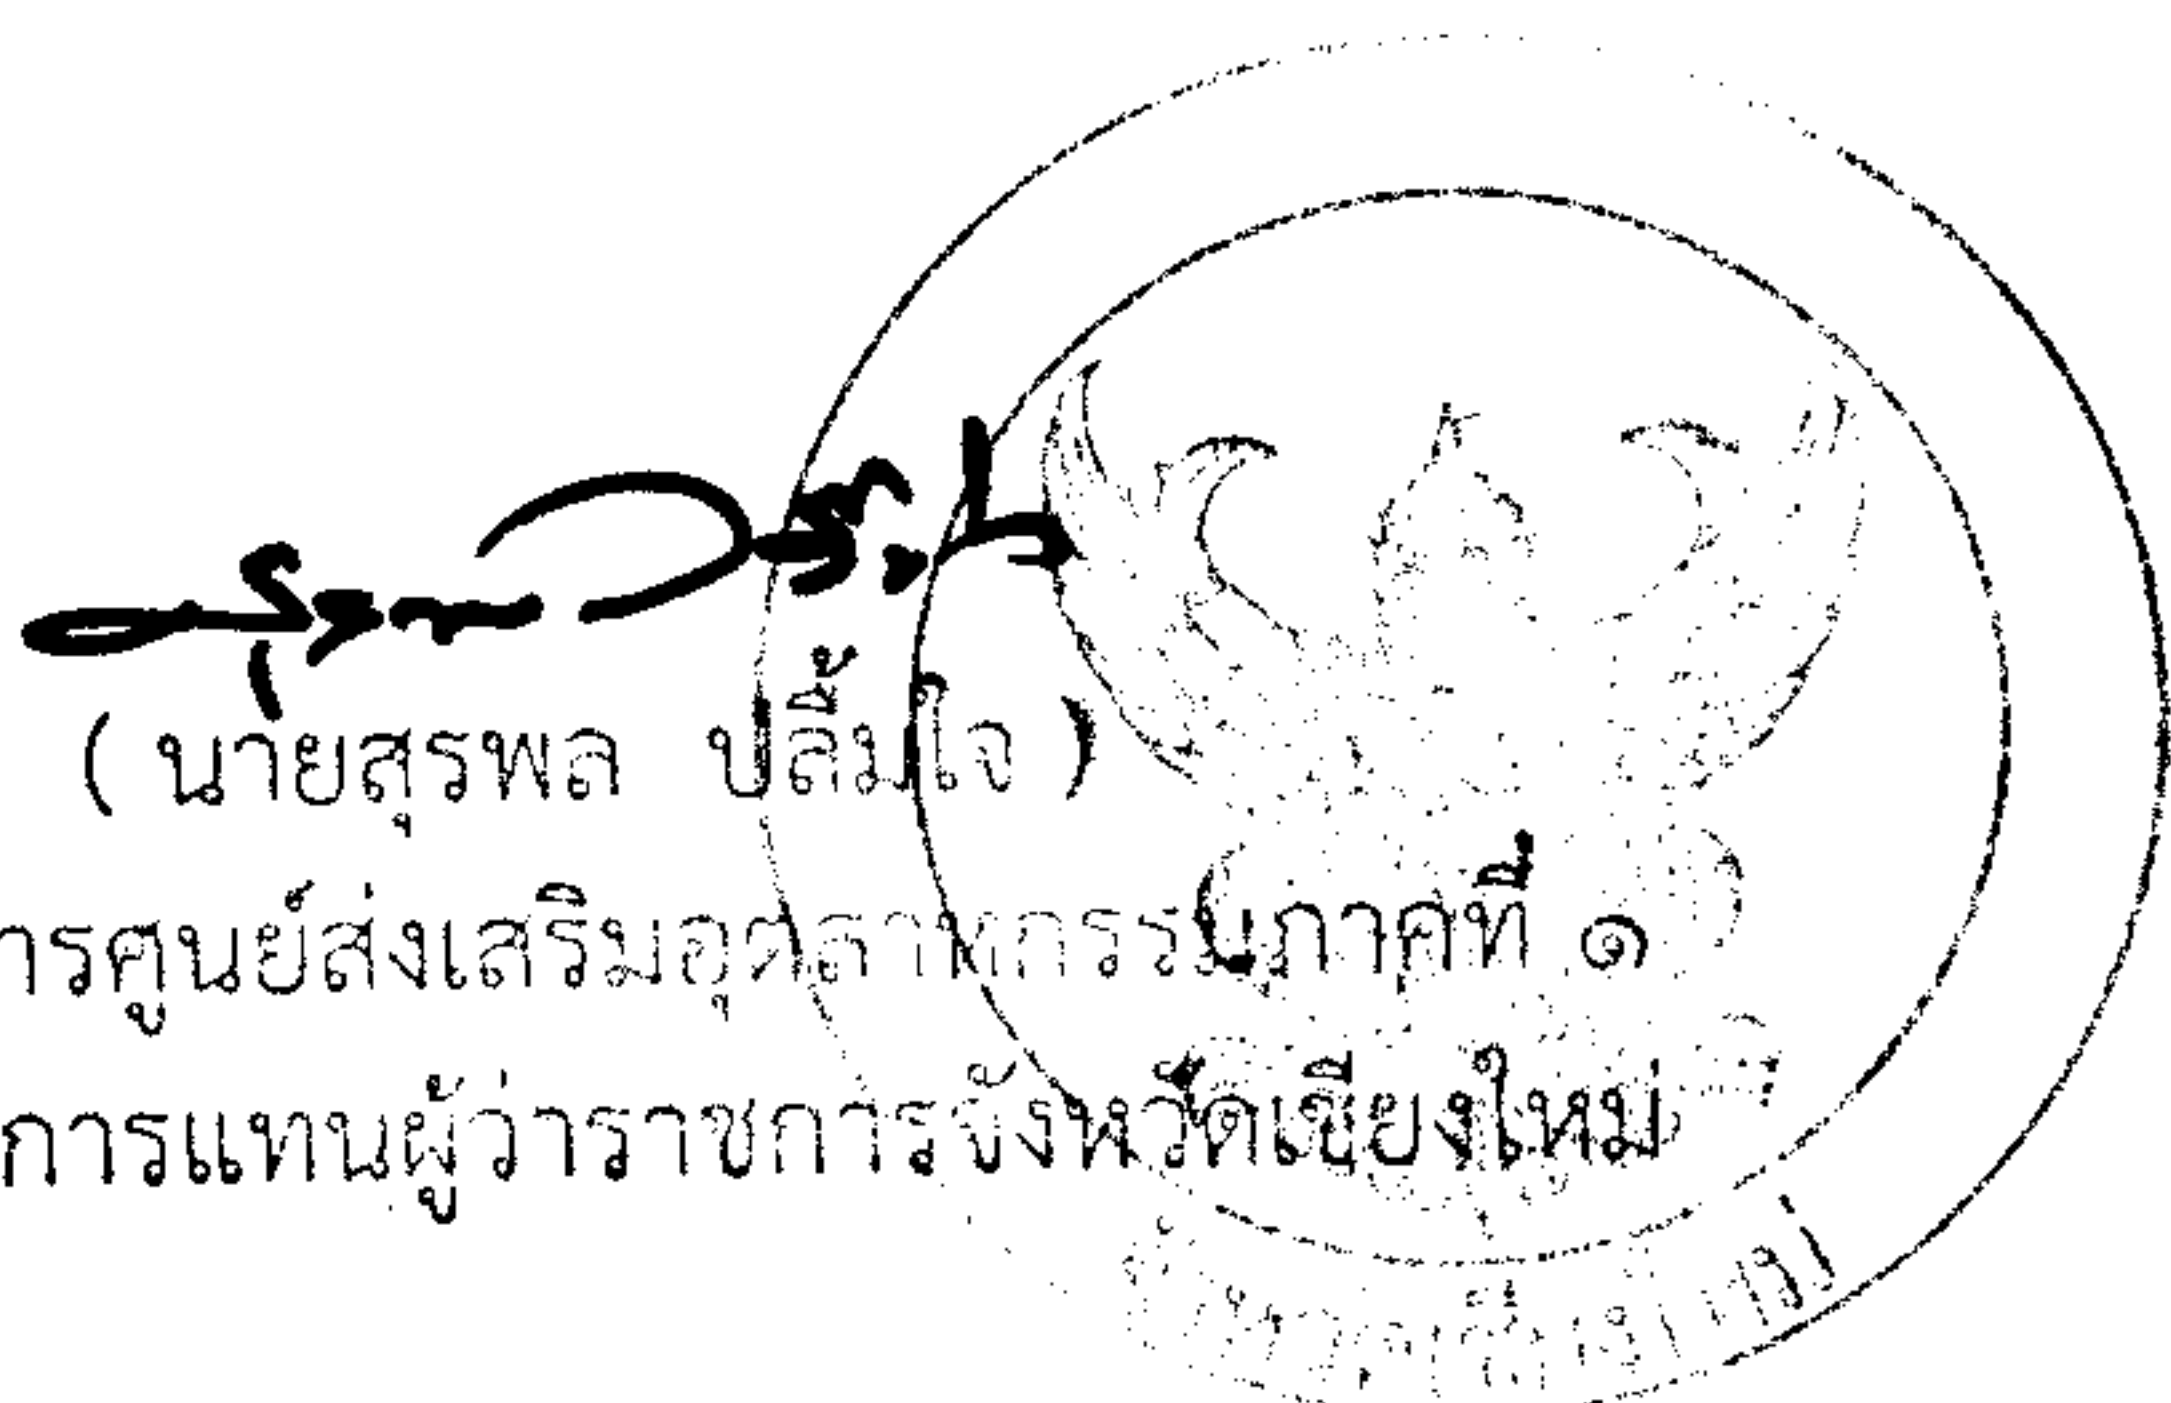 ( นายสุรพล ปลื้มใจ )
ารศูนย์ส่งเสริมอุตสาหกรรมภาคที่ ๑
การแทนผู้ว่าราชการจังหวัดเชียงใหม่
จังหวัดเชียงใหม่